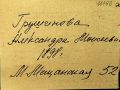 Грушенкова
Александра Моисеевн
1898.
М. Мещанская 52